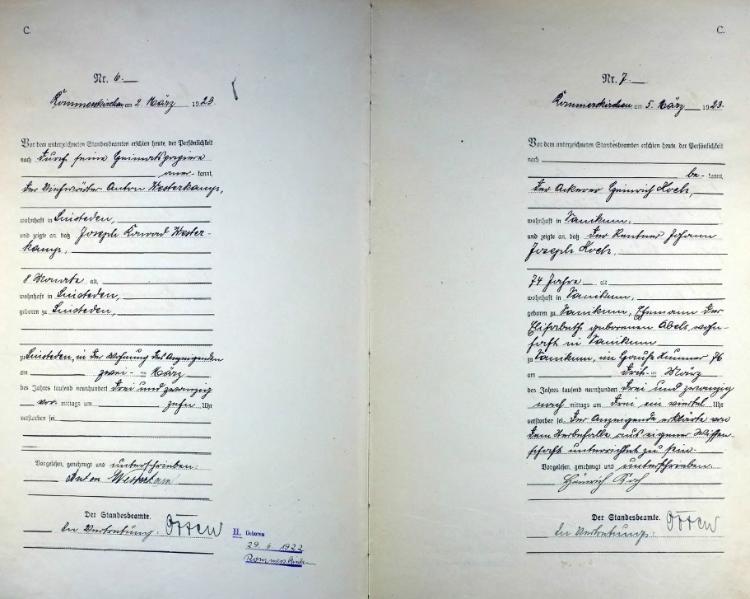 C.
Nr. 6.
Rommerskirchen am 2. März 1923
Vor dem unterzeichneten Standesbeamten erschien heute, der Persönlichkeit
nach durch seine Heiratspapiere
aner- kannt,
der Viehwärter Anton Westerkamp,
wohnhaft in Sinsteden,
und zeigte an, daß Joseph Konrad Wester-
kamp,
8 Monate alt,
wohnhaft in Sinsteden,
geboren zu Sinsteden,
zu Sinsteden, in der Wohnung des Anzeigenden
am zwei- ten März
des Jahres tausend neunhundert drei und zwanzig
vor- mittags um zehn Uhr
verstorben sei.
Vorgelesen, genehmigt und unterschrieben.
Anton Westerkam
Der Standesbeamte.
In Vertretung: Otten
II. Geboren
29. 6. 1922
Rommerskirchen
C.
Nr. 7.
Rommerskirchen am 5. März 1923.
Vor dem unterzeichneten Standesbeamten erschien heute, der Persönlichkeit
nach
be- kannt,
der Ackerer Heinrich Koch,
wohnhaft in Vanikum,
und zeigte an, daß der Rentner Johann
Joseph Koch,
74 Jahre alt
wohnhaft in Vanikum,
geboren zu Vanikum, Ehemann der
Elisabeth geborenen Abels, wohn-
haft in Vanikum
zu Vanikum, im Hause Nummer 76
am drit- ten März
des Jahres tausend neunhundert drei und zwanzig
nach mittags um drei ein viertel Uhr
verstorben sei. Der Anzeigende erklärte von
dem Sterbefalle aus eigener Wissen-
schaft unterrichtet zu sein.
Vorgelesen, genehmigt und unterschrieben.
Heinrich Koch
Der Standesbeamte.
In Vertretung: Otten